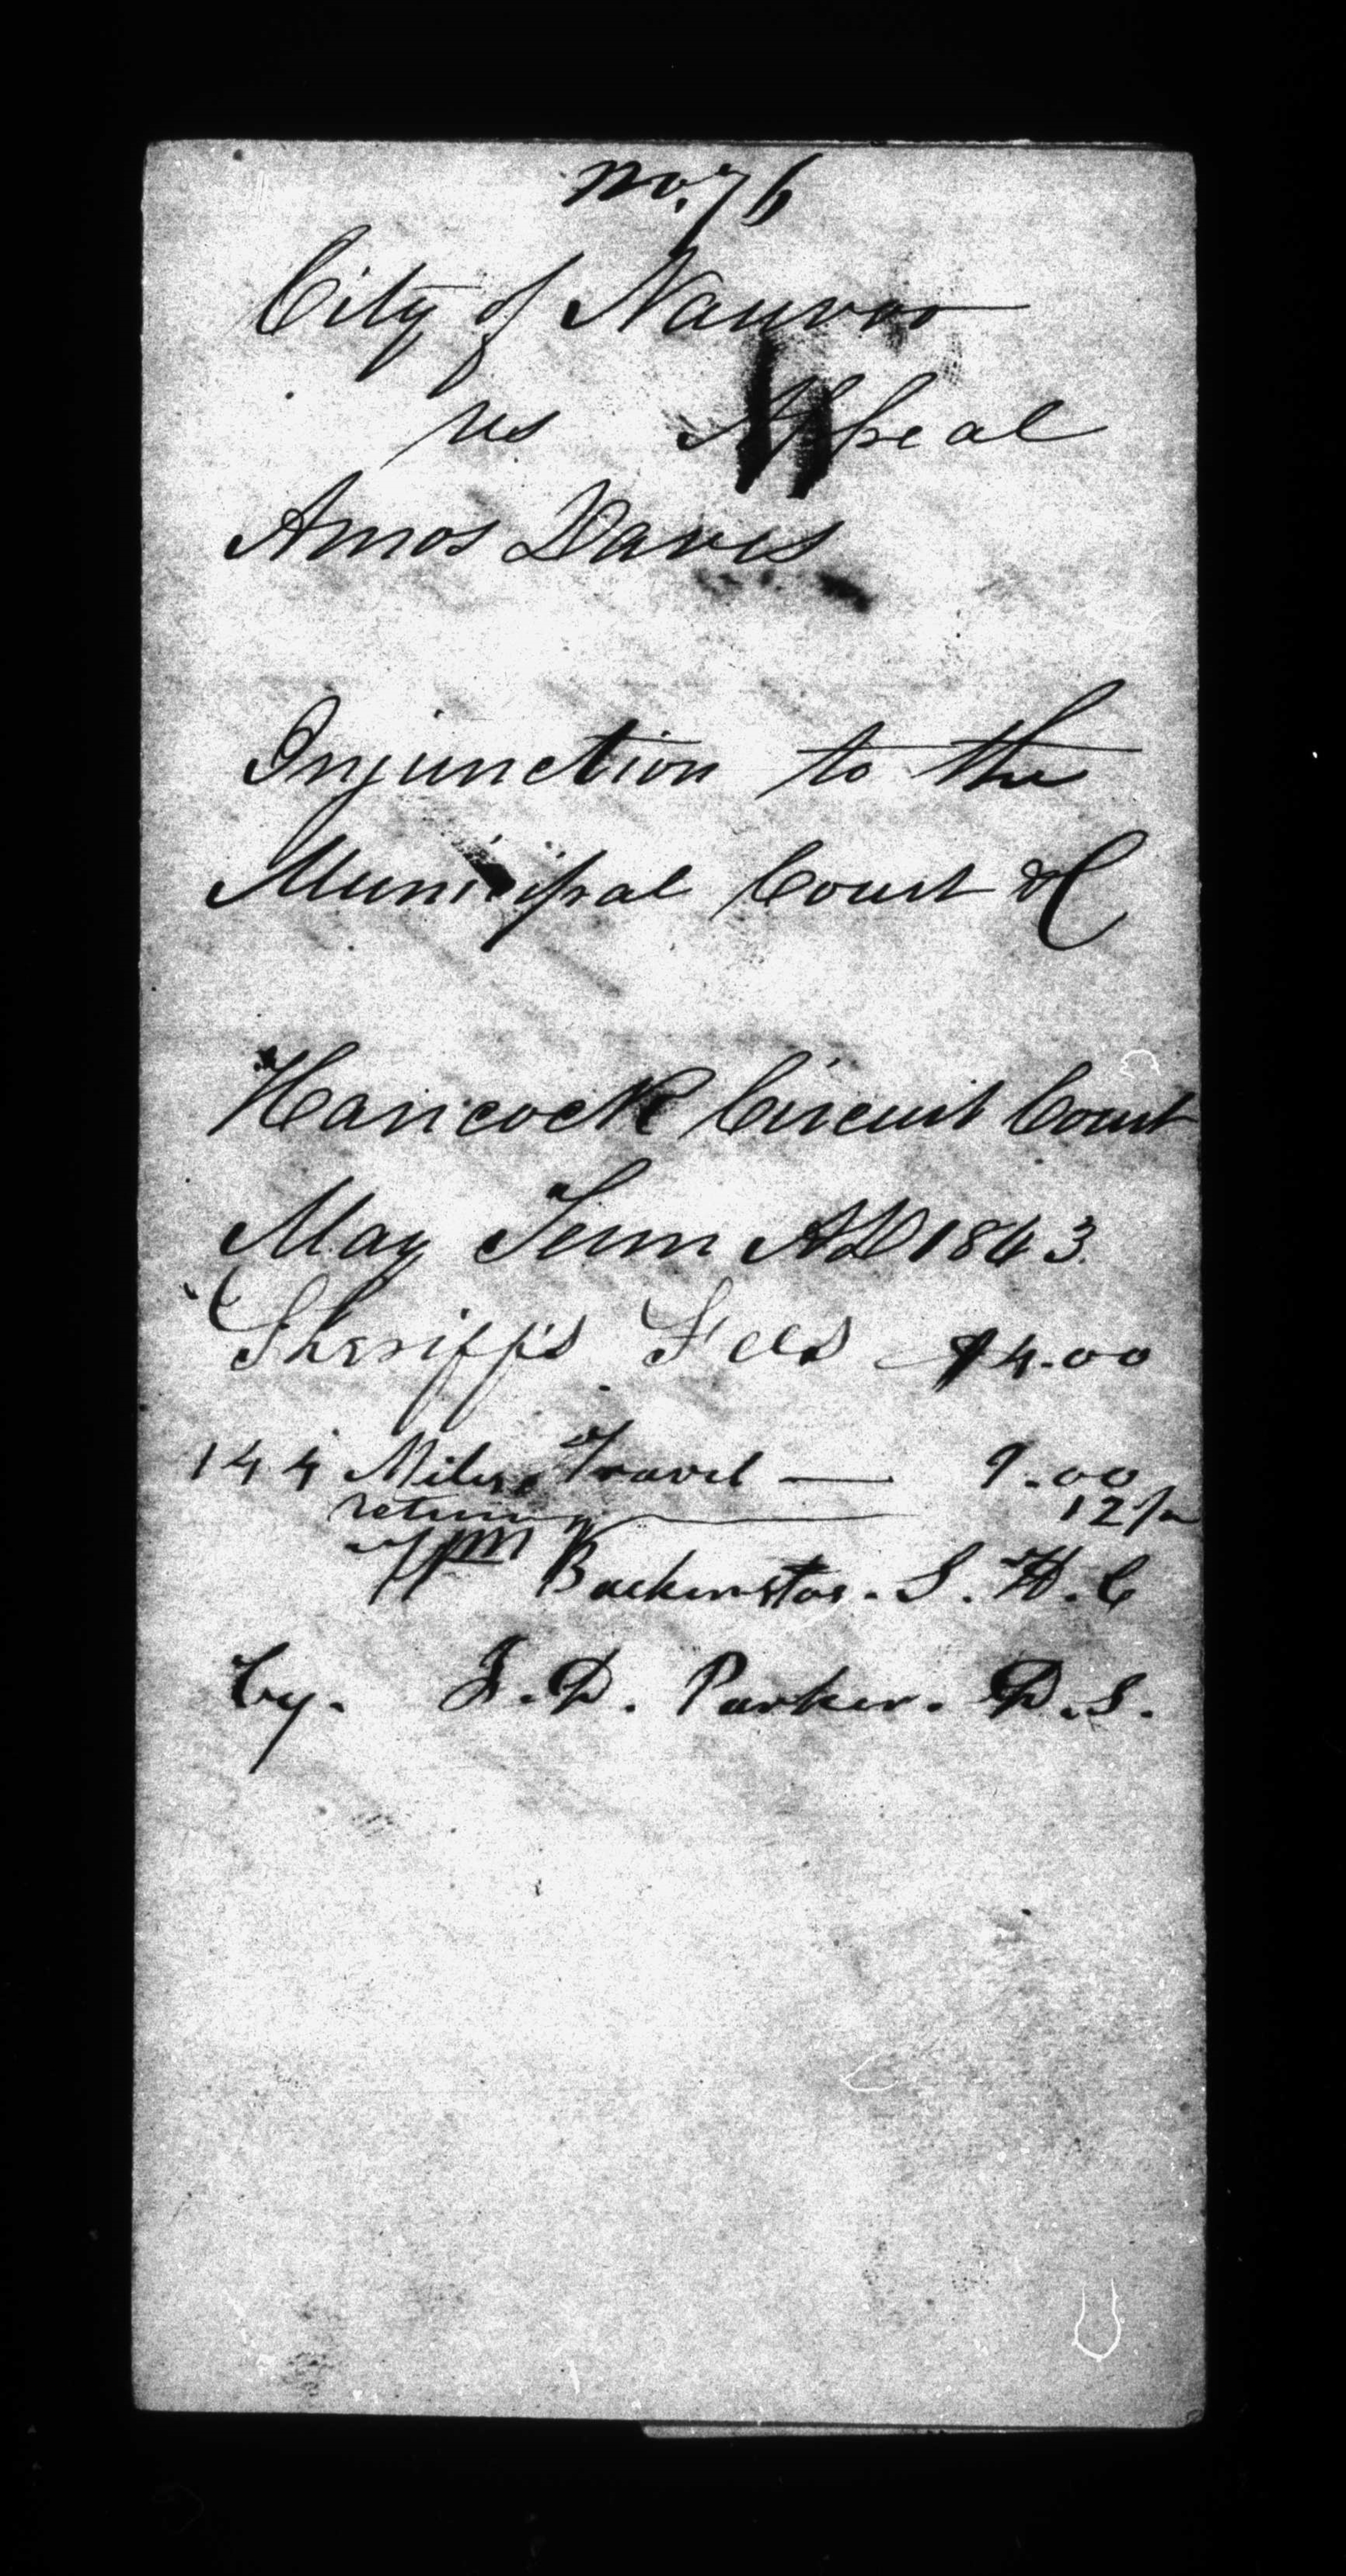 No. 76
City of Nauvoo
vs Appeal
Amos Davis
Injunction to the
Municipal Court &C
Hancock Circuit Court
May Term AD 1843.
Sheriff's Fees $4.00
144 Miles Travel — 9.00
return 12½
Wm Backenstos. S. H. C
by. J. D. Parker. D. S.